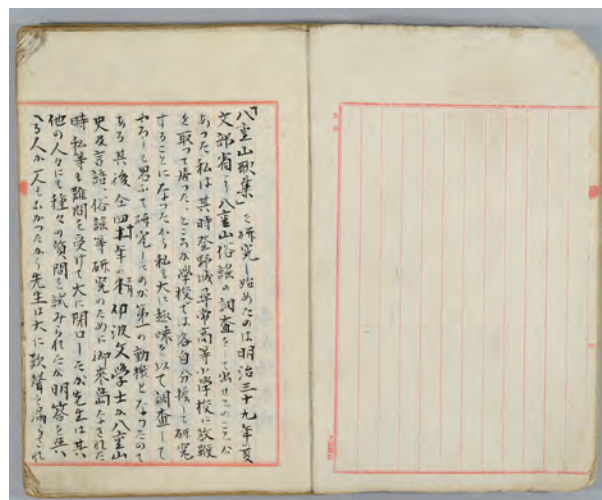 「八重山歌集」を研究し始めたのは明治三十九年頃
文部省より八重山俗謡の調査をして出せとのことが
あった私は其時登野城尋常高等小学校に教鞭
を取って居った、ところが学校では各自分担して研究
することになったから私も大に趣味を以て調査して
やろーと思ふて研究したのが第一の動機となったので
ある其後仝四十年の 伊波文学士が八重山
史及言語、俗謡等研究のために御来島なされた
時私等も難問を受けて大に閉口したが先生は其
他の人々にも種々の質問を試みられたが明答を与
へる人が一人もなかったから先生は大に歎声を漏らされ